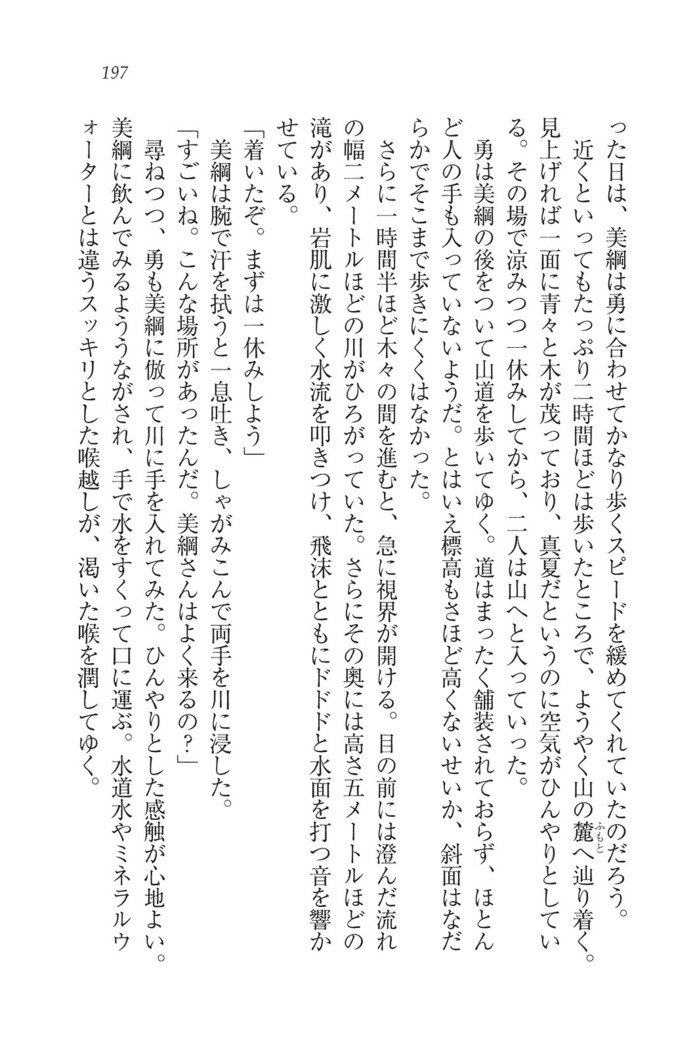 197
った日は、美綱は勇に合わせてかなり歩くスピードを緩めてくれていたのだろう。
近くといってもたっぷり二時間ほどは歩いたところで、ようやく山の麓へ辿り着く。
ふもと
見上げれば一面に青々と木が茂っており、真夏だというのに空気がひんやりとしてい
る。その場で涼みつつ一休みしてから、二人は山へと入っていった。
勇は美綱の後をついて山道を歩いてゆく。道はまったく舗装されておらず、ほとん
ど人の手も入っていないようだ。とはいえ標高もさほど高くないせいか、斜面はなだ
らかでそこまで歩きにくくはなかった。
さらに一時間半ほど木々の間を進むと、急に視界が開ける。目の前には澄んだ流れ
の幅二メートルほどの川がひろがっていた。さらにその奥には高さ五メートルほどの
滝があり、岩肌に激しく水流を叩きつけ、飛沫とともにドドドと水面を打つ音を響か
せている。
「着いたぞ。まずは一休みしよう」
美綱は腕で汗を拭うと一息吐き、しゃがみこんで両手を川に浸した。
「すごいね。こんな場所があったんだ。美綱さんはよく来るの？」
尋ねつつ、勇も美綱に倣って川に手を入れてみた。ひんやりとした感触が心地よい。
美綱に飲んでみるよううながされ、手で水をすくって口に運ぶ。水道水やミネラルウ
ォーターとは違うスッキリとした喉越しが、渇いた喉を潤してゆく。